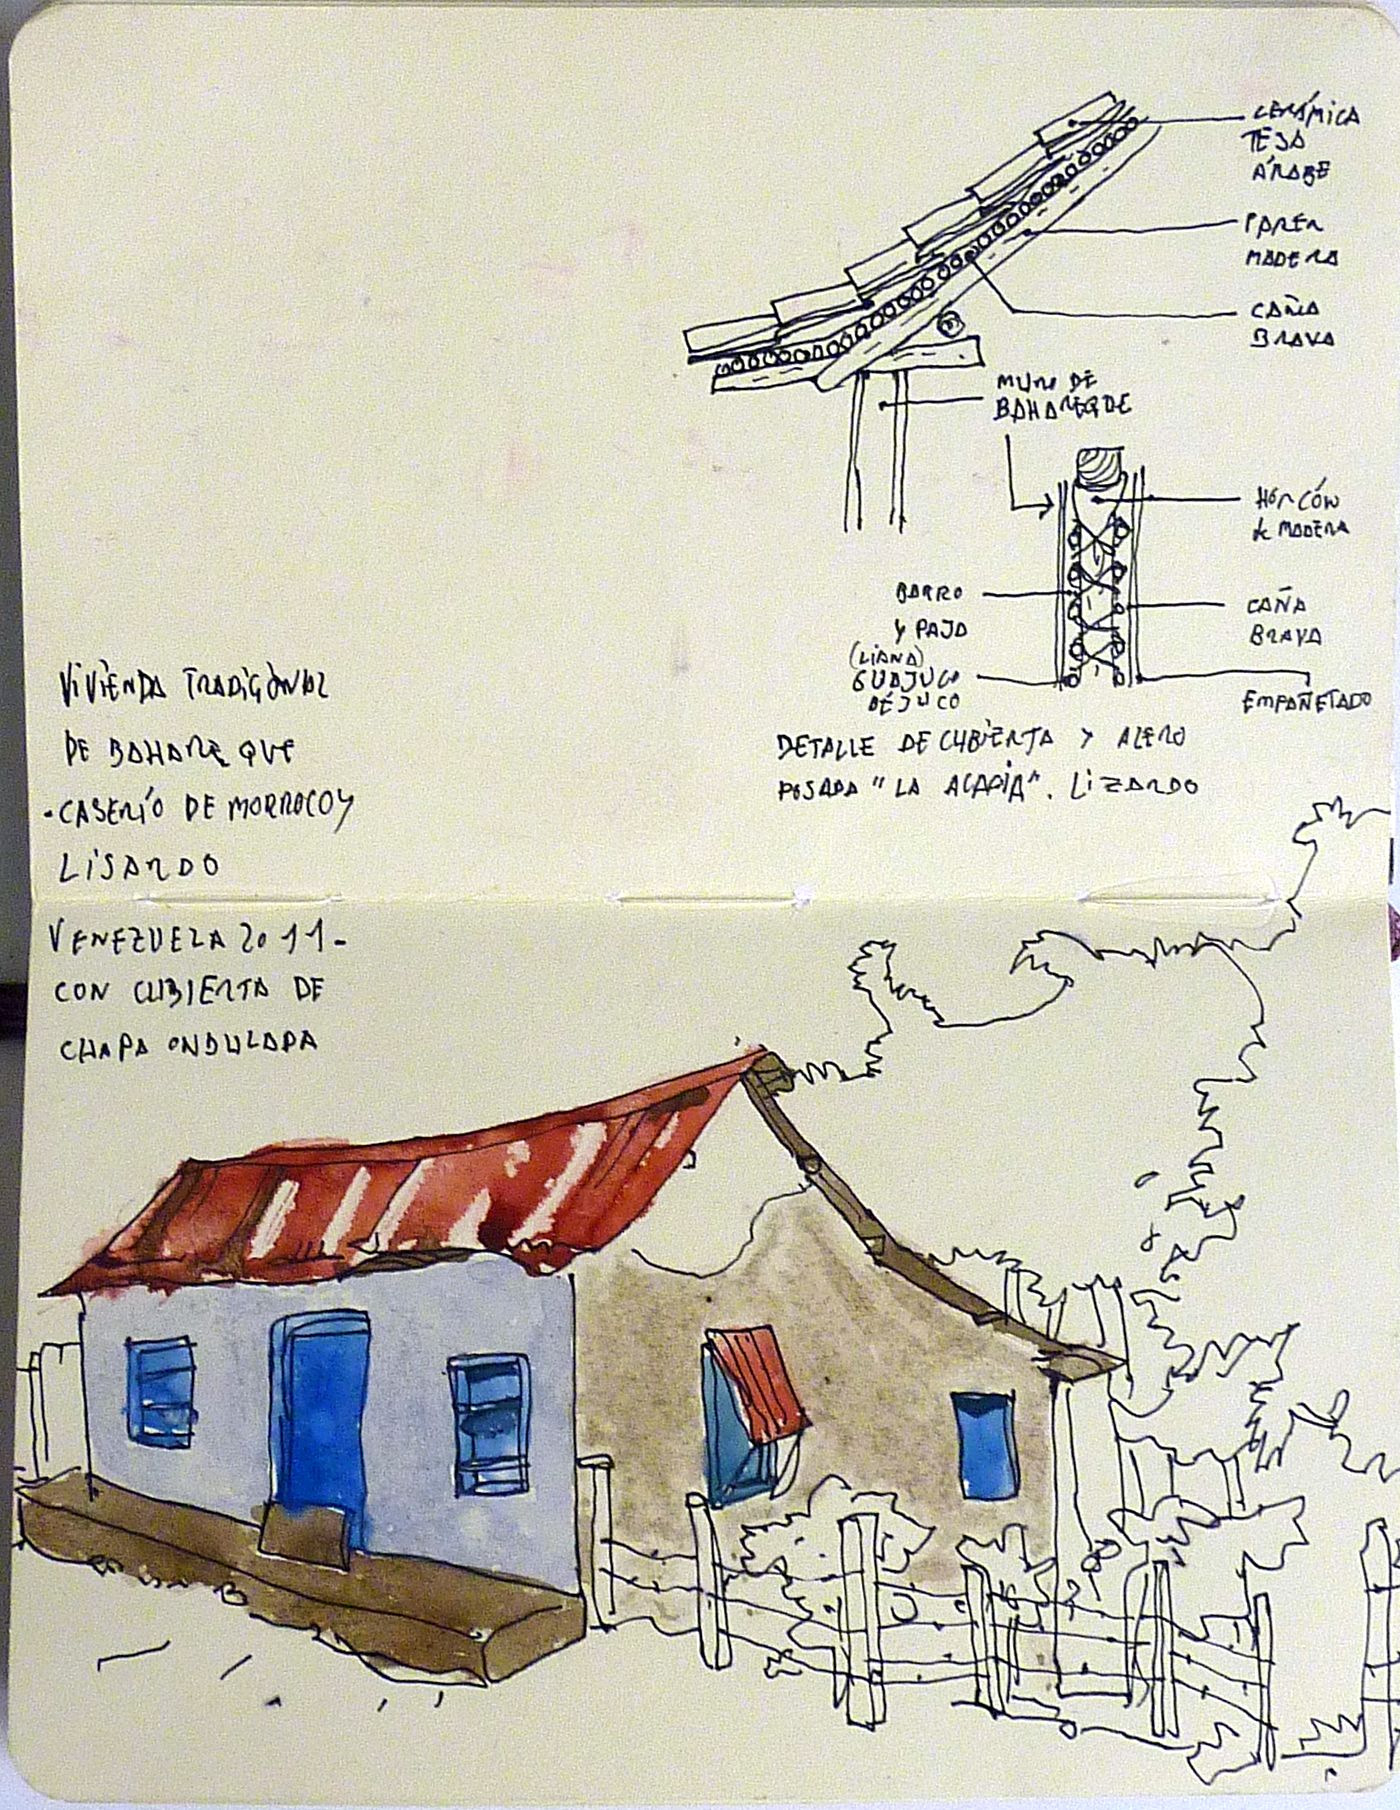 CERÁMICA
TEJA
ÁRABE
PARER
MADERA
CAÑA
BRAVA
MURO DE
BAHAREQUE
HORCÓN
de MADERA
BARRO
Y PAJA
(LIANA)
GUAJUCO
BÉJUCO
CAÑA
BRAVA
EMPAÑETADO
DETALLE DE CUBIERTA Y ALERO
POSADA "LA ACACIA". LIZARDO
VIVIENDA TRADICIONAL
DE BAHAREQUE
-CASERÍO DE MORROCOY
LISARDO
VENEZUELA 2011-
CON CUBIERTA DE
CHAPA ONDULADA